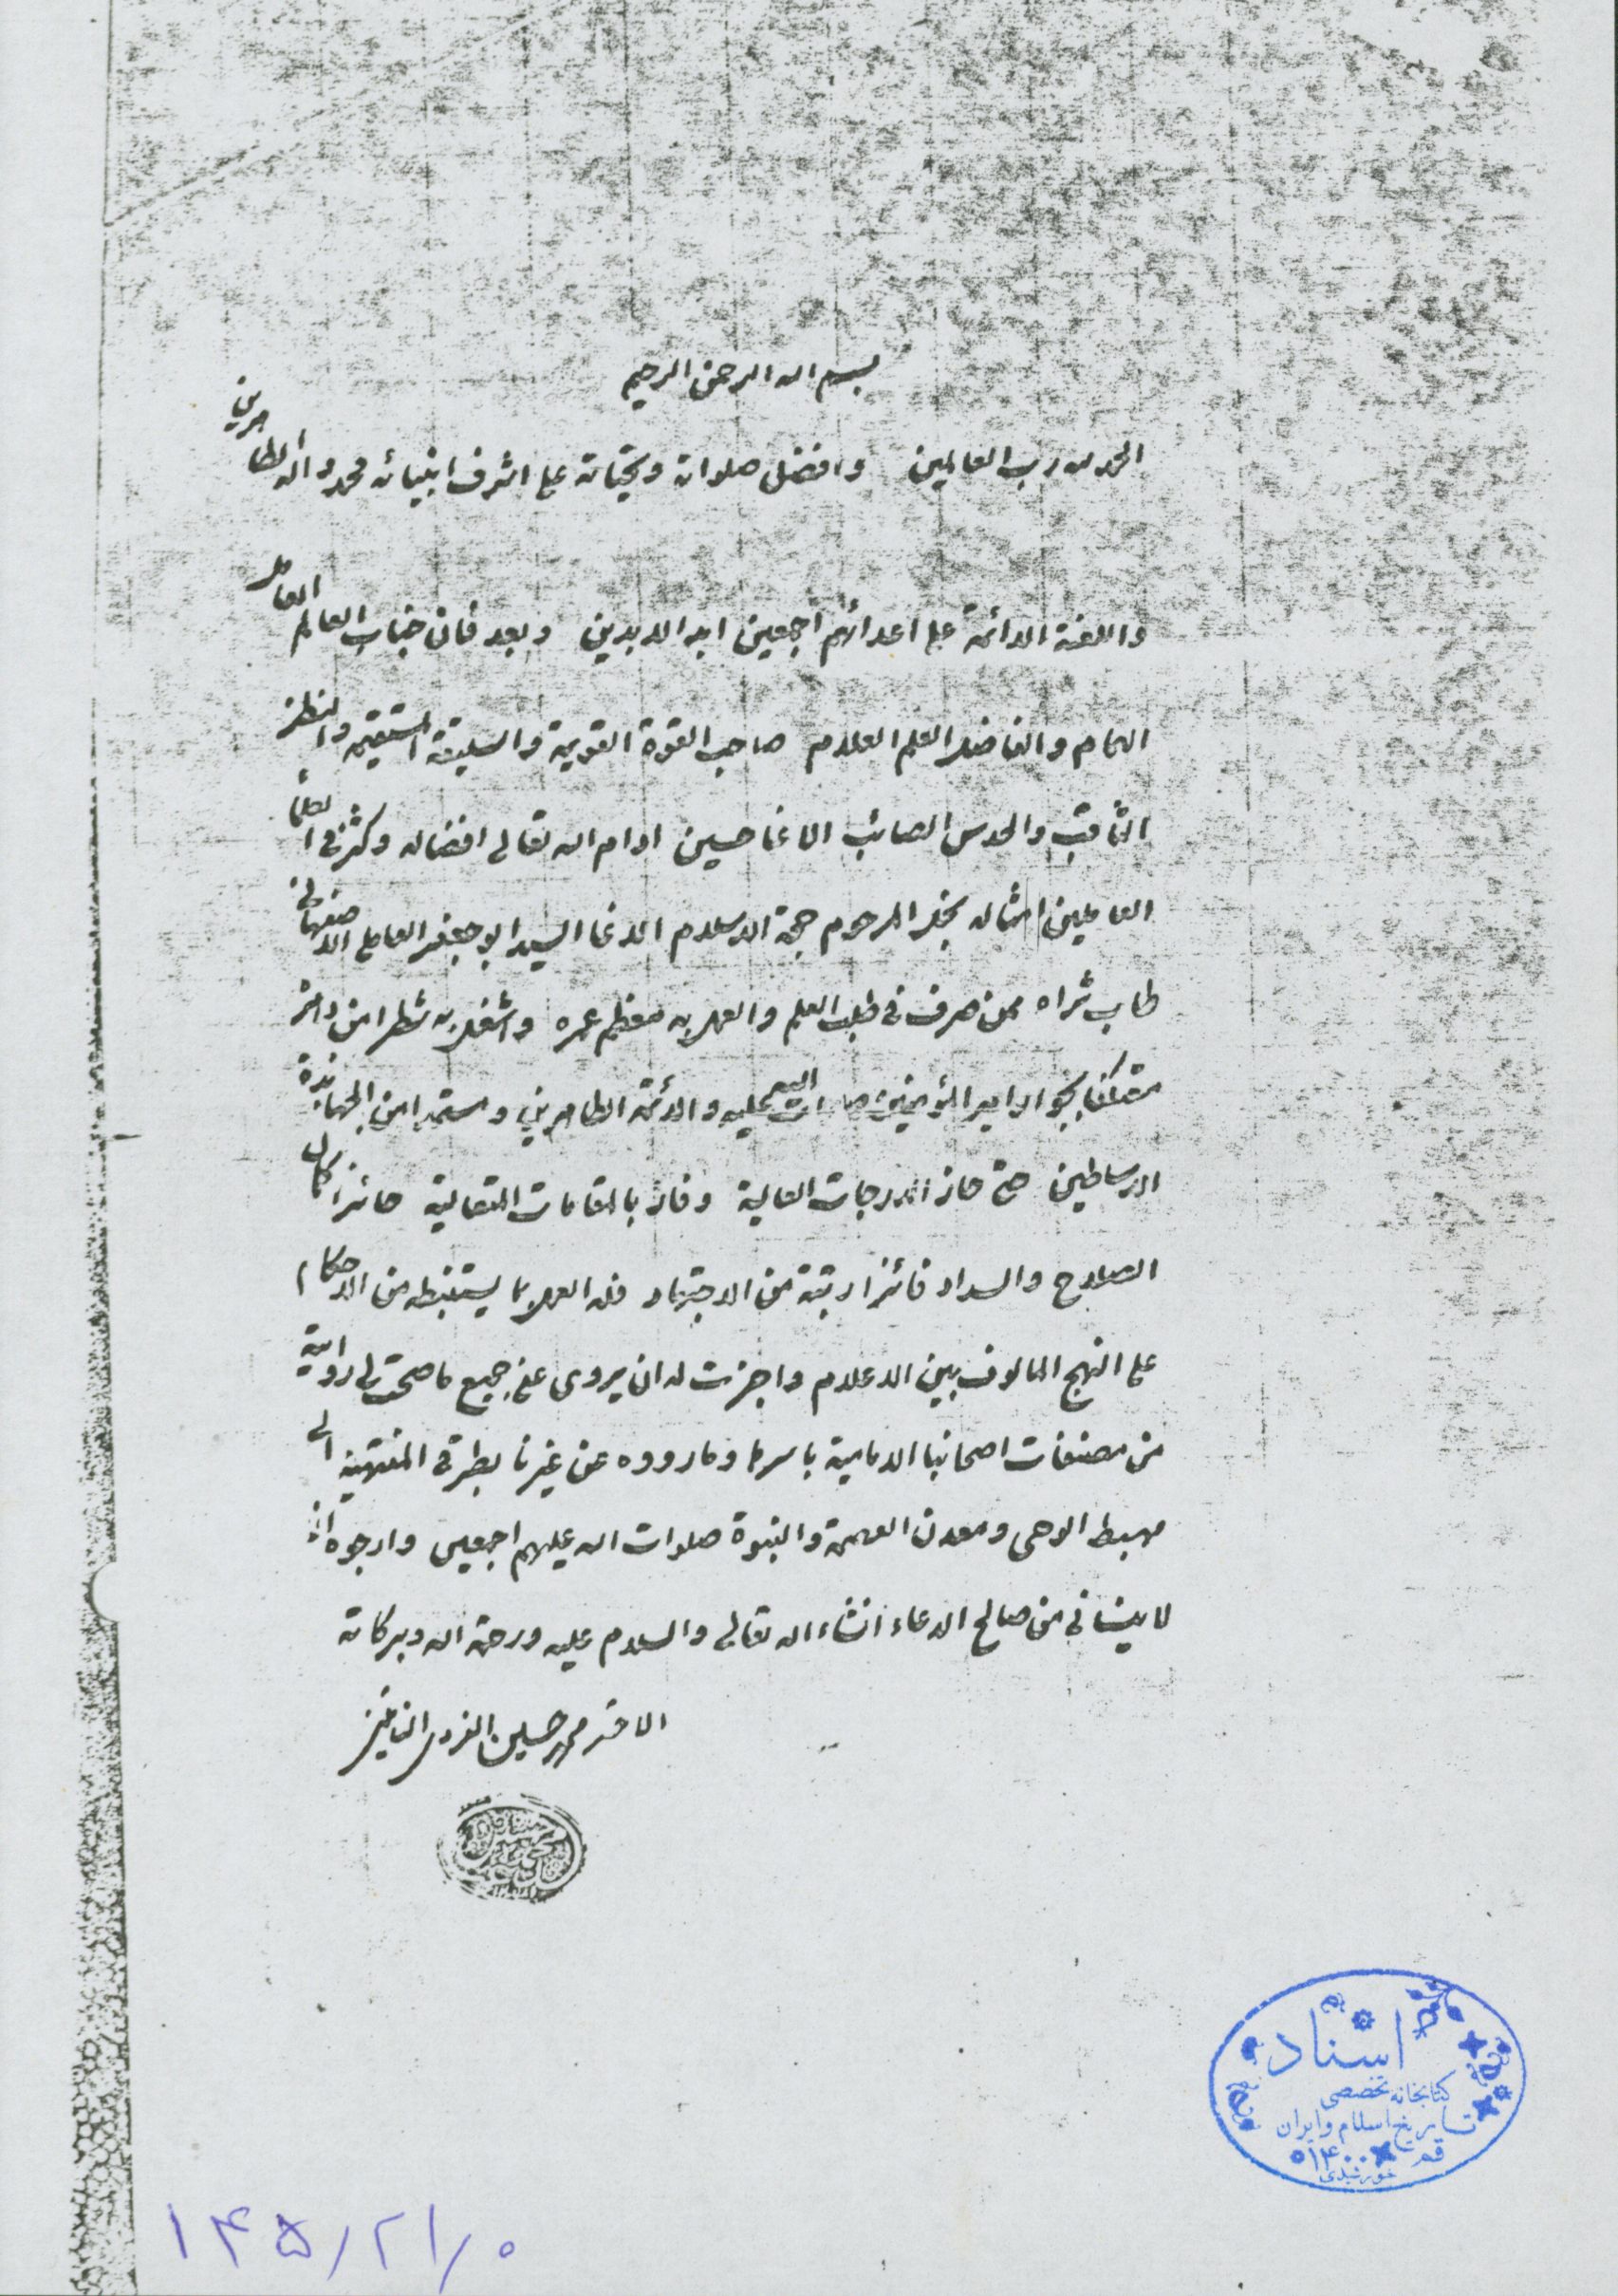 بسم الله الرحمن الرحیم
الحمد لله رب العالمین وافضل صلواته وتحیاته علی اشرف انبیائه محمد واله الطاهرین
واللعنة الدائمة علی اعدائهم اجمعین ابد الابدین وبعد فان جناب العالم العامل
الهمام والفاضل العلم العلام صاحب القوة القویمة والسلیقة المستقیمة والنظر
الثاقب والحدس الصائب الاغا حسین ادام الله تعالی افضاله وکثر فی العلماء
العاملین امثاله نجل المرحوم حجة الاسلام الاغا السید ابو جعفر العاملی الاصفهانی
طاب ثراه ممن صرف فی طلب العلم والعمل به معظم عمره واشغل به شطرا من دهره
معتکفا بجوار امیر المؤمنین صلوات الله علیه والائمة الطاهرین ومستمدا من الجهابذة
الاساطین حتی حاز الدرجات العالیة وفاز بالمقامات المتعالیة حائزا کمال
الصلاح والسداد فائزا رتبة من الاجتهاد فله العمل بما یستنبطه من الاحکام
علی النهج المالوف بین الاعلام واجزت له ان یروی عنی جمیع ما صحت لی روایته
من مصنفات اصحابنا الامامیة باسرها وما رووه عن غیرنا بطرقی المنتهیة الی
مهبط الوحی ومعدن العصمة والنبوة صلوات الله علیهم اجمعین وارجوه ان
لا ینسانی من صالح الدعاء انشاء الله تعالی والسلام علیه ورحمة الله وبرکاته
الاحقر محمد حسین الغروی النائینی
اسناد
کتابخانه تخصصی
تاریخ اسلام و ایران
قم ۱۴۰۰
خورشیدی
۱۴۵/۲۱/۰